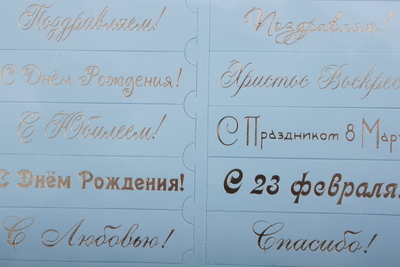 Поздравляем!
С Днём Рождения!
С Юбилеем!
С Днём Рождения!
С Любовью!
Поздравляю!
Христос Воскрес
С Праздником 8 Март
С 23 февраля!
Спасибо!